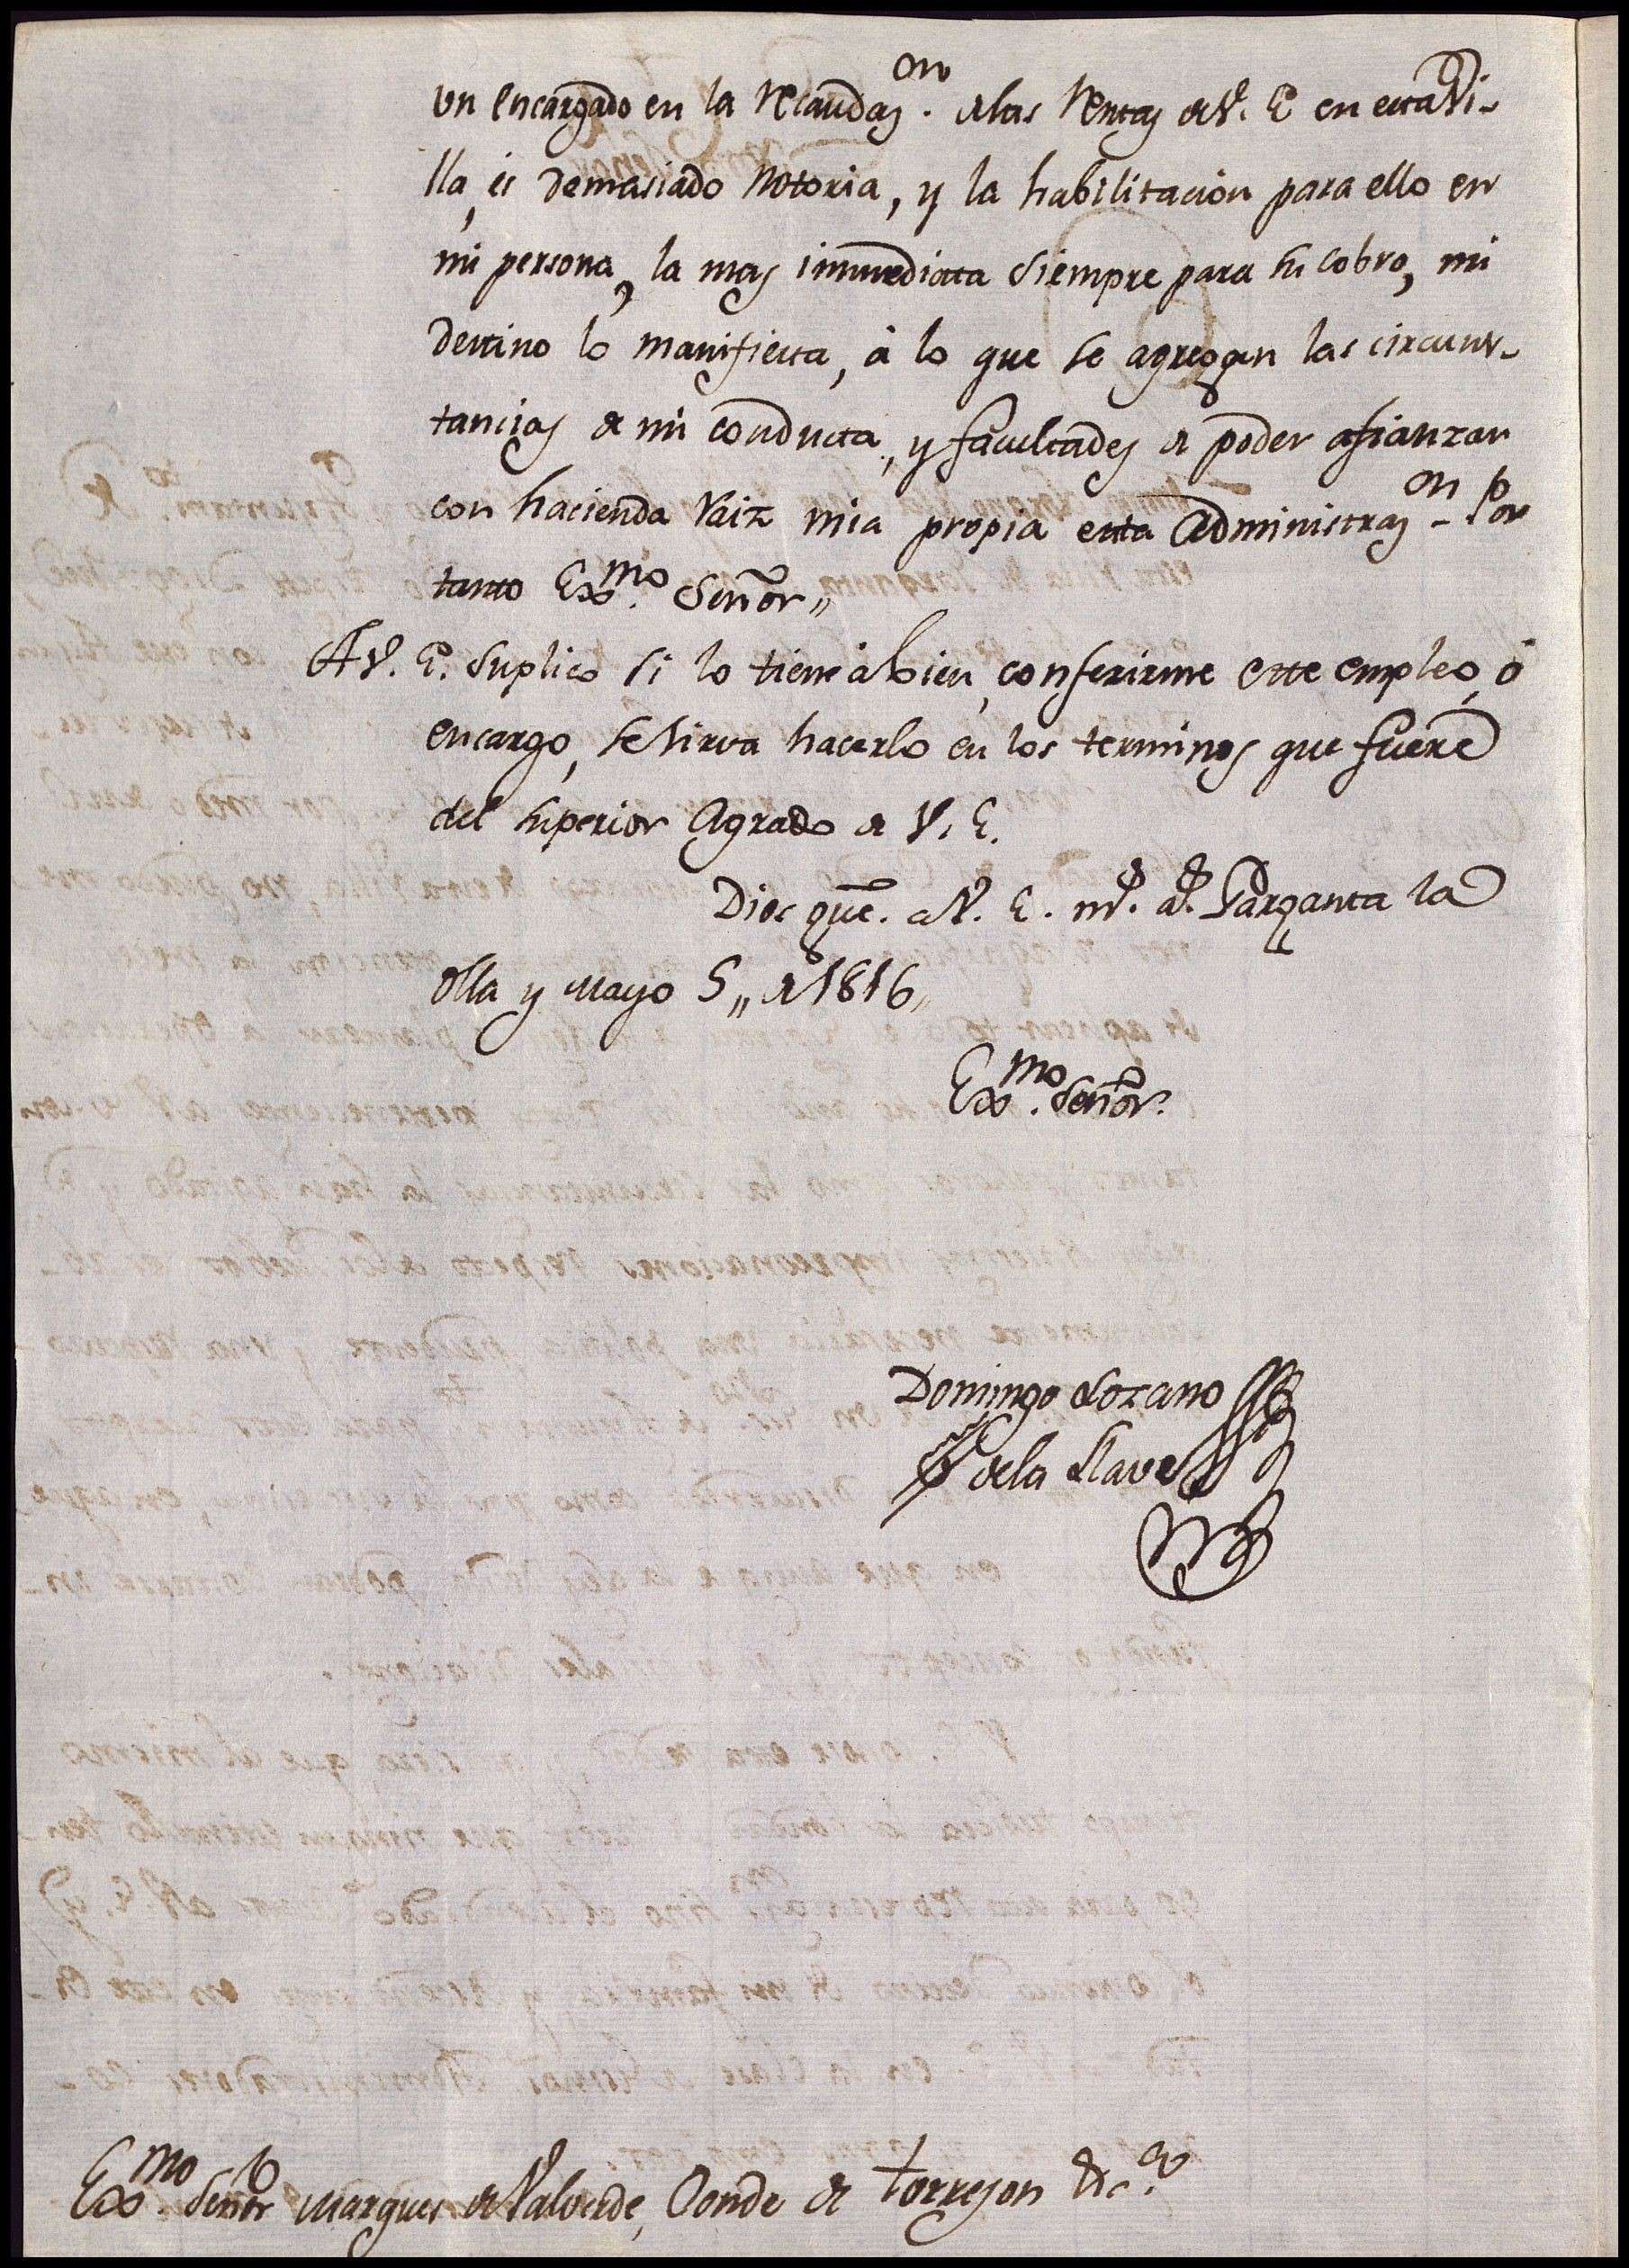 un encargado en la recaudaz.on de las rentas de V. E. en esta Vi-
lla, es demasiado notoria, y la habilitacion para ello en
mi persona, la mas immediata siempre para su cobro, mi
destino lo manifiesta, á lo que se agregan las circuns-
tancias de mi conducta, y facultades de poder afianzar
con hacienda raiz mia propia esta administraz.on - Por
tanto Ex.mo Señor,,
A V. E. suplico si lo tiene á bien, conferirme este empleo, ó
encargo, se sirva hacerlo en los terminos que fuere
del superior agrado de V. E.
Dios gue. a V. E. ms. as. Garganta la
olla y Mayo 5,, de 1816,,
Ex.mo Señor.
Domingo Lozano
de la Llave
Ex.mo Señor Marques de Valverde, Conde de Torrejon &c.a